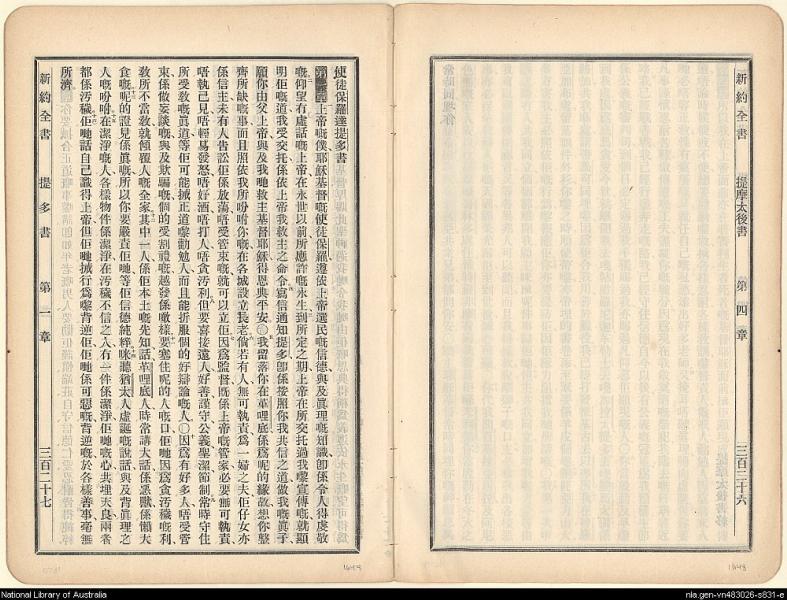 新約全書　提摩太後書　第四章　三百二十六
使徒保羅達提多書
第一章 上帝嘅僕耶穌基督嘅使徒保羅遵依上帝選民嘅信德與及眞理嘅知識卽係令人得虔敬
嘅仰望有虛話嘅上帝在永世以前所應許嘅永生到所定之期上帝在所交托過我嚟宣傳嘅就顯
明佢嘅道我受交托係依上帝我救主之命令寫信通知提多卽係按照你我共信之道做我嘅眞子
願你由父上帝與及我哋救主基督耶穌得恩典平安〇我留落你在革哩底係爲呢的緣故想你整
齊所缺嘅事而且照依我所吩咐你嘅在各城設立長老倘若有人無可執責爲一婦之夫佢仔女亦
係信主未有人告訟佢係放蕩唔受管束嘅就可以立佢因爲監督旣係上帝嘅管家必要無可執責
唔執己見唔輕易發怒唔好酒唔打人唔貪汚利但要喜接遠人好善謹守公義聖潔節制常時守住
所受教嘅眞道等佢可能搣正道嚟勸勉人而且能折服個的好辯論嘅人〇因爲有好多人唔受管
束係做妄談嘅與及欺騙嘅個的受割禮嘅越發係噉樣要塞住呢的人嘅口佢哋因爲貪汚穢嘅利
教所不當教就傾覆人嘅全家其中一人係佢本土嘅先知話革哩底人時常講大話係惡獸係懶大
食嘅呢的證見係眞嘅所以你要嚴責佢哋等佢信德純粹咪聽猶太人虛誕嘅說話與及背眞理之
人嘅吩咐在潔淨嘅人各樣物件係潔淨在汚穢不信之人冇一件係潔淨佢哋嘅心共埋天良兩者
都係汚穢佢哋話自己識得上帝但佢哋搣行爲嚟背逆佢佢哋係可惡嘅背逆嘅於各樣善事毫無
所濟
新約全書　提多書　第一章　三百二十七
1648
National Library of Australia
nla.gen-vn483026-s831-e